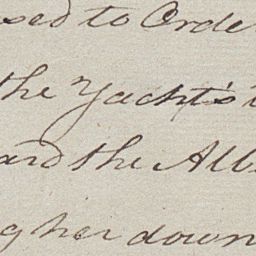 sed to Orde
the Yacht's
ard the Alb
g her down